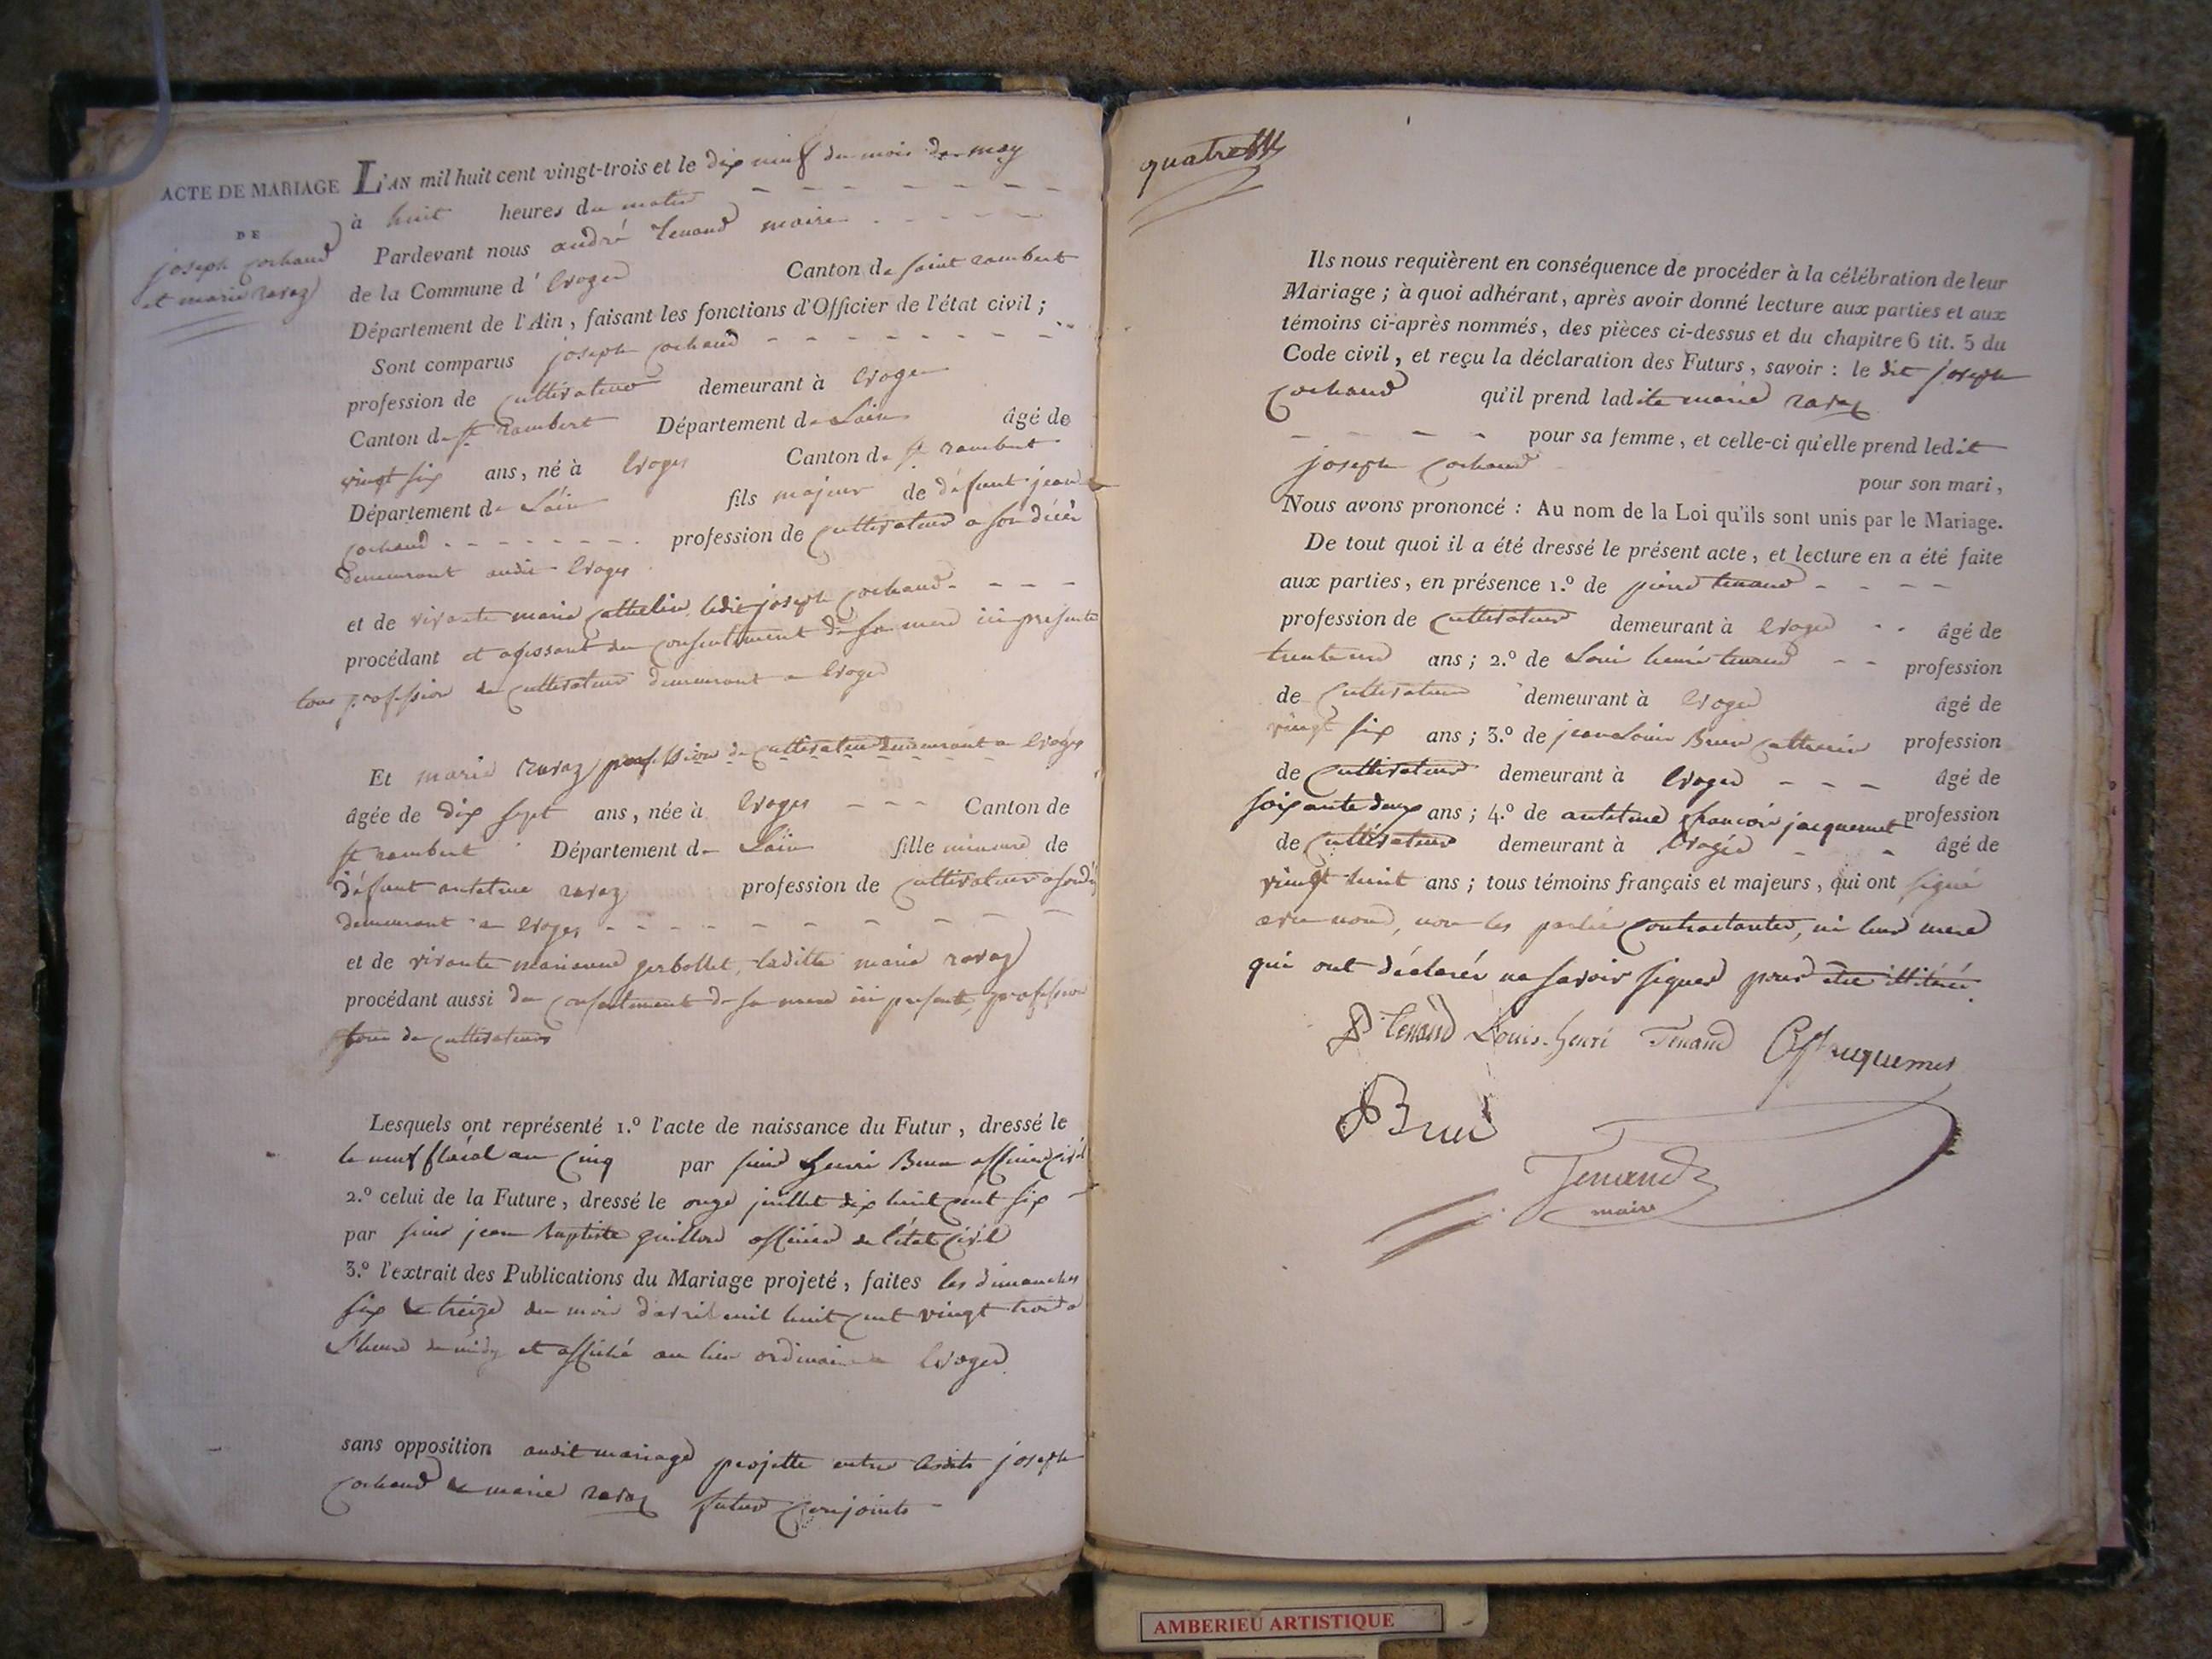 ACTE DE MARIAGE
DE
joseph cochaud
et marie ravaz
L'AN mil huit cent vingt-trois et le dix neuf du mois de may
à huit heures du matin
Pardevant nous andré tenand maire
de la Commune d' Evoges Canton de saint rambert
Département de l'Ain, faisant les fonctions d'Officier de l'état civil ;
Sont comparus joseph cochaud
profession de cultivateur demeurant à Evoges
Canton de st rambert Département de Lain âgé de
vingt six ans, né à Evoges Canton de st rambert
Département de Lain fils majeur de défunt jean
cochaud profession de cultivateur a son décès
demeurant audit Evoges
et de vivante marie cathelin ledit joseph cochaud
procédant et agissant du consentement de sa mere ici presente
tous profession de cultivateur demeurant a Evoges
Et marie ravaz profession de cultivateur demeurant a Evoges
âgée de dix sept ans, née à Evoges Canton de
st rambert Département de Lain fille mineure de
défunt antelme ravaz profession de cultivateur a son
demeurant a Evoges
et de vivante marianne gerbollet, laditte marie ravaz
procédant aussi du consentement de sa mere ici presente, profession
tous de cultivateurs
Lesquels ont représenté 1.º l'acte de naissance du Futur, dressé le
le neuf floréal an cinq par sieur henri Brun officier civil
2.º celui de la Future, dressé le onze juillet dix huit cent six
par sieur jean baptiste guillon officier de l'état civil
3.º l'extrait des Publications du Mariage projeté, faites les dimanches
six & treize du mois d'avril mil huit cent vingt trois a
l'heure de midy et affiché au lieu ordinaire a Evoges
sans opposition audit mariage projette entre lesdits joseph
cochaud & marie ravaz futur conjoints
quatre
Ils nous requièrent en conséquence de procéder à la célébration de leur
Mariage ; à quoi adhérant, après avoir donné lecture aux parties et aux
témoins ci-après nommés, des pièces ci-dessus et du chapitre 6 tit. 5 du
Code civil, et reçu la déclaration des Futurs, savoir : le dit joseph
cochaud qu'il prend ladite marie ravaz
pour sa femme, et celle-ci qu'elle prend ledit
joseph cochaud
pour son mari,
Nous avons prononcé : Au nom de la Loi qu'ils sont unis par le Mariage.
De tout quoi il a été dressé le présent acte, et lecture en a été faite
aux parties, en présence 1.º de pierre tenand
profession de cultivateur demeurant à Evoges âgé de
ans ; 2.º de Louis henri tenand profession
de cultivateur demeurant à Evoges âgé de
vingt six ans ; 3.º de jean Louis Brun cathelin profession
de cultivateur demeurant à Evoges âgé de
soixante deux ans ; 4.º de antelme françois jacquemet profession
de cultivateur demeurant à Evoges âgé de
vingt huit ans ; tous témoins français et majeurs, qui ont signé
avec nous, non les parties contractantes, ni leurs mere
qui ont déclarés ne savoir signer pour être illitérés.
P. Tenand Louis-henri Tenand
Brun
Tenand
maire
AMBERIEU ARTISTIQUE